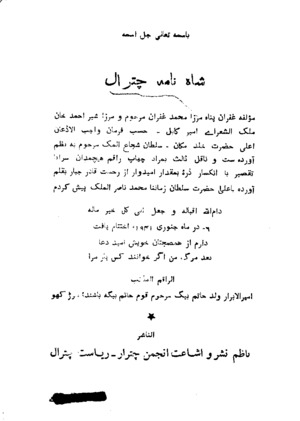 باسمه تعالی جل اسمه
شاه نامه چترال
مؤلفه غفران پناه مرزا محمد غفران مرحوم و مرزا شیر احمد خان
ملک الشعراے امیر کابل - حسب فرمان واجب الاذعان
اعلی حضرت خلد مکان - سلطان شجاع الملک مرحوم به نظم
آورده ست و ناقل ثالث بمراد چهاپ راقم هیچمدان سراپا
تقصیر با انکسار ذرۂ بمقدار امیدوار از رحمت قادر جبار بقلم
آورده باعلی حضرت سلطان زماننا محمد ناصر الملک پیش کردم
دام‌الله اقباله و جعل کل خیر ماله
در ماه جنوری اختتام یافت
دارم از همصحنان خویش امید دعا
بعد مرگ من اگر خوانند کس مرا
الراقم المذنب
امیرالابرار ولد حاتم بیگ مرحوم قوم حاتم بیگه باشنده
الناشر
ناظم نشر و اشاعت انجمن چترار - ریاست چترال